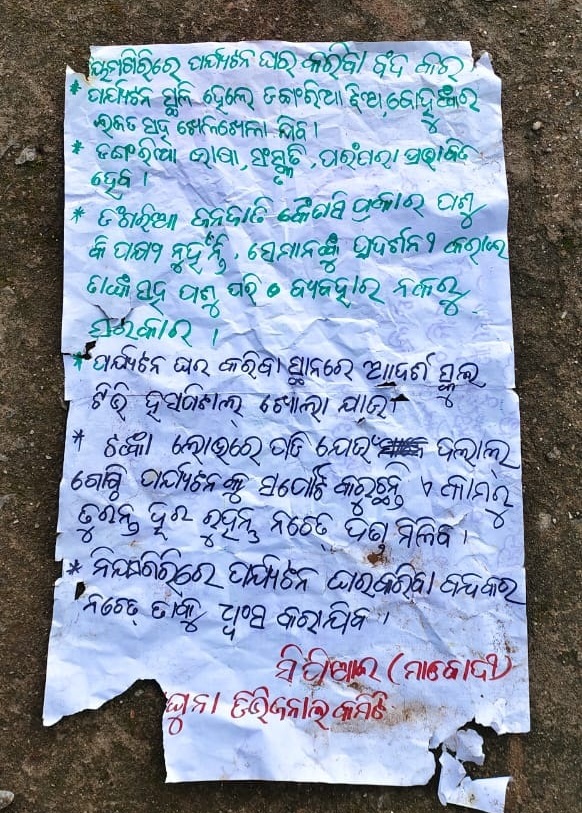 ନିୟମଗିରିରେ ପର୍ଯ୍ୟଟନ ଘର କରିବା ବନ୍ଦ କର
* ପର୍ଯ୍ୟଟନ ସ୍ଥଳି ହେଲେ ଡଙ୍ଗରିଆ ଝିଅ, ବୋହୁଙ୍କର
ଇଜତ ସହ ଖେଳଖେଳା ଯିବ।
* ଡଙ୍ଗରିଆ ଭାଷା, ସଂସ୍କୃତି, ପରଂପରା ପ୍ରଭାବିତ
ହେବ।
* ଡଂଗରିଆ ଜନଜାତି କୌଣସି ପ୍ରକାର ପଶୁ
କି ପଣ୍ୟ ନୁହଁନ୍ତି, ସେମାନଙ୍କୁ ପ୍ରଦର୍ଶନୀ କରାଇ
ତାଙ୍କ ସହ ପଶୁ ପରି ବ୍ୟବହାର ନକରୁ
ସରକାର।
* ପର୍ଯ୍ୟଟନ ଘର କରିବା ସ୍ଥାନରେ ଆଦର୍ଶ ସ୍କୁଲ
ହସପିଟାଲ୍ ଖୋଲା ଯାଉ
* ଟଙ୍କା ଲୋଭରେ ପଡି ଯେଉଁ ଦଲାଲ୍
ଗୋଷ୍ଠି ପର୍ଯ୍ୟଟନକୁ ସପୋର୍ଟ କରୁଛନ୍ତି ଏ କାମରୁ
ତୁରନ୍ତ ଦୂର ରୁହନ୍ତୁ ନଚେତ୍ ଦଣ୍ଡ ମିଳିବ।
* ନିୟମଗିରିରେ ପର୍ଯ୍ୟଟନ ଘର କରିବା ବନ୍ଦ କର
ନଚେତ୍ ତାକୁ ଧ୍ୱଂସ କରାଯିବ।
ସି ପିଆଇ (ମାଓବାଦୀ)
ଘୁମା ଡିଭିଜନାଲ କମିଟି